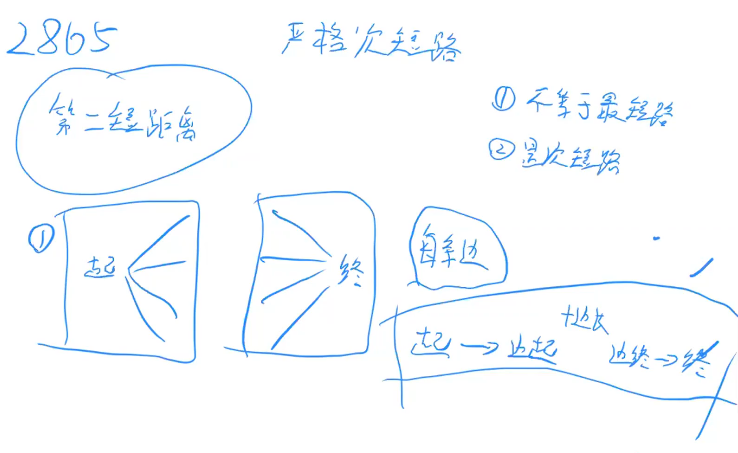 2865
严格次短路
第二短距离
① 不等于最短路
② 是次短路
①
起
终
每条边
+边长
起→边起
边终→终